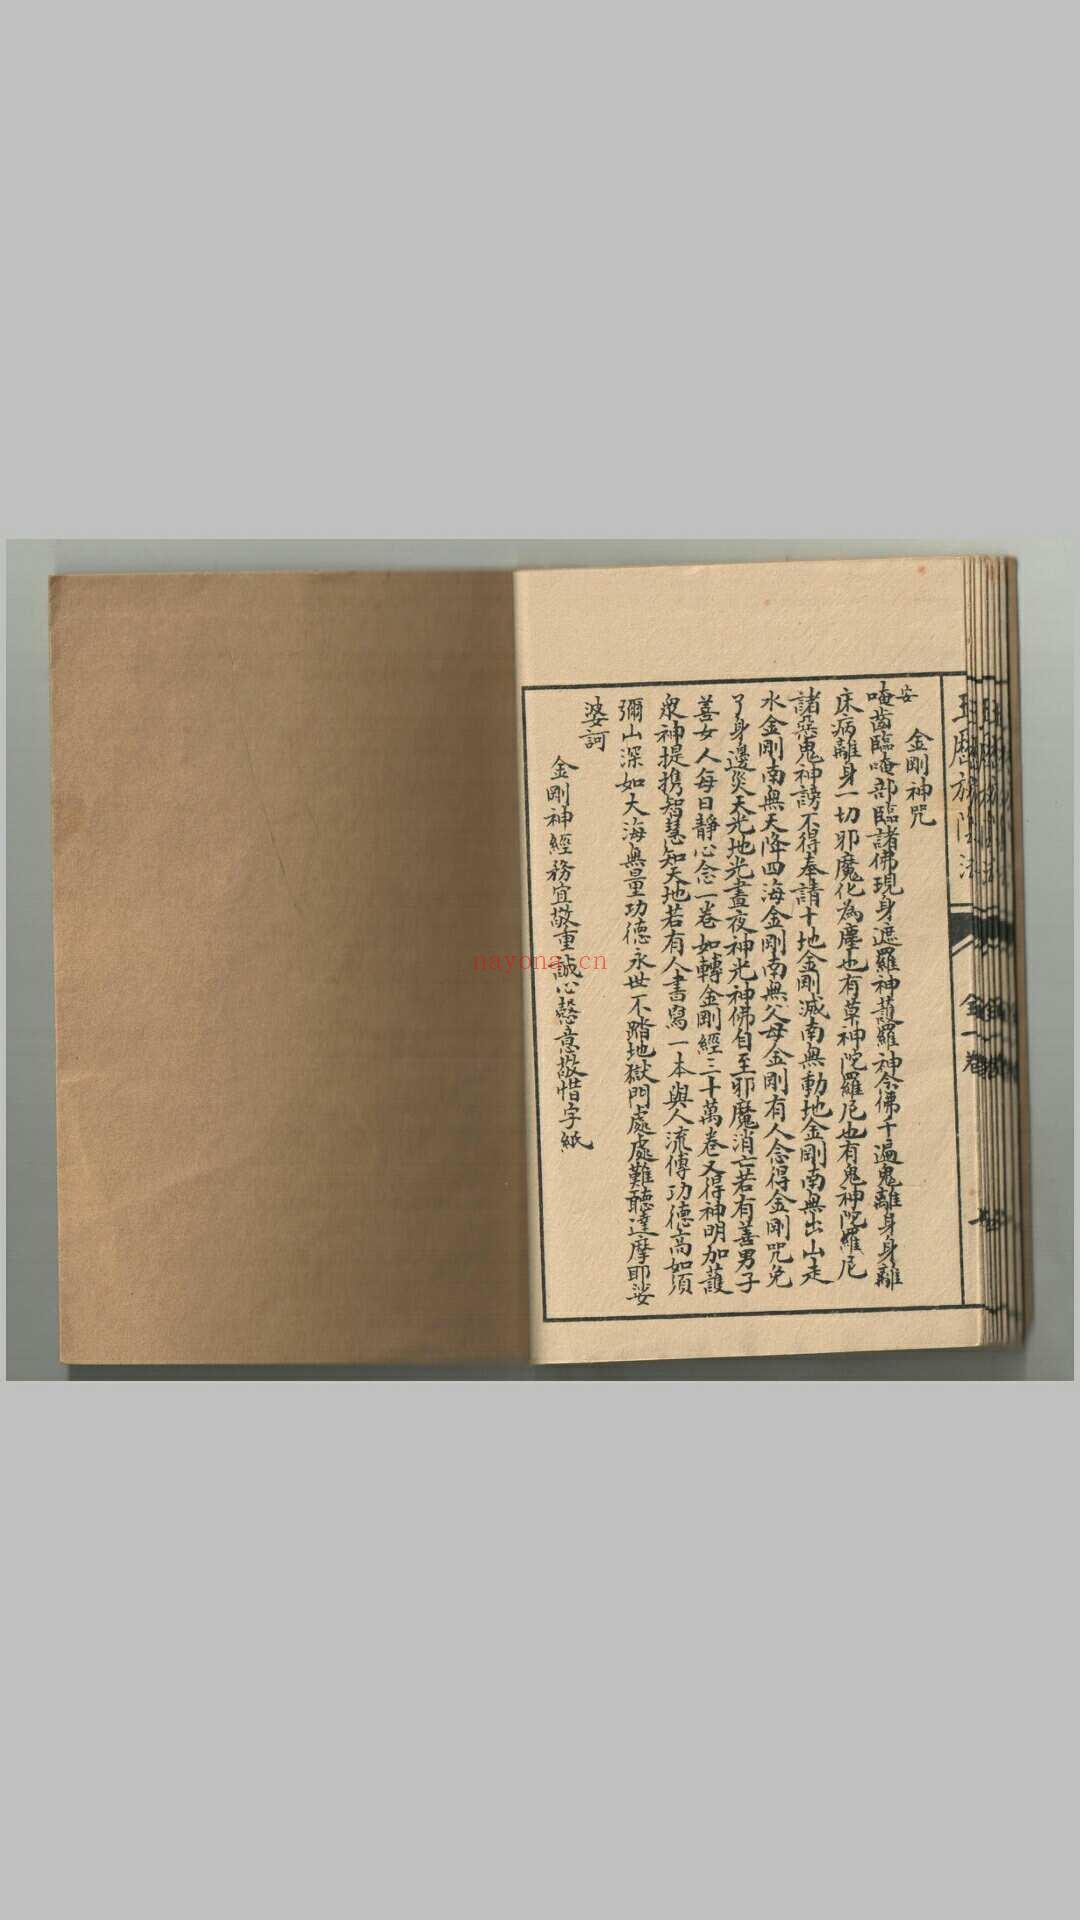 金剛神咒
安
唵齒臨唵部臨諸佛現身遮羅神護羅神今佛千遍鬼離身身離
床病離身一切邪魔化為塵也有草神陀羅尼也有鬼神陀羅尼
諸惡鬼神謗不得奉請十地金剛滅南無動地金剛南無出山走
水金剛南無天降四海金剛南無父母金剛有人念得金剛咒免
了身邊災天光地光晝夜神光神佛自至邪魔消亡若有善男子
善女人每日靜心念一卷如轉金剛經三十萬卷又得神明加護
眾神提携智慧知天地若有人書寫一本與人流傳功德高如須
彌山深如大海無量功德永世不踏地獄門處處難聽達摩耶娑
婆訶
金剛神經務宜敬重誠心慤意敬惜字紙
全一卷
nayona.cn